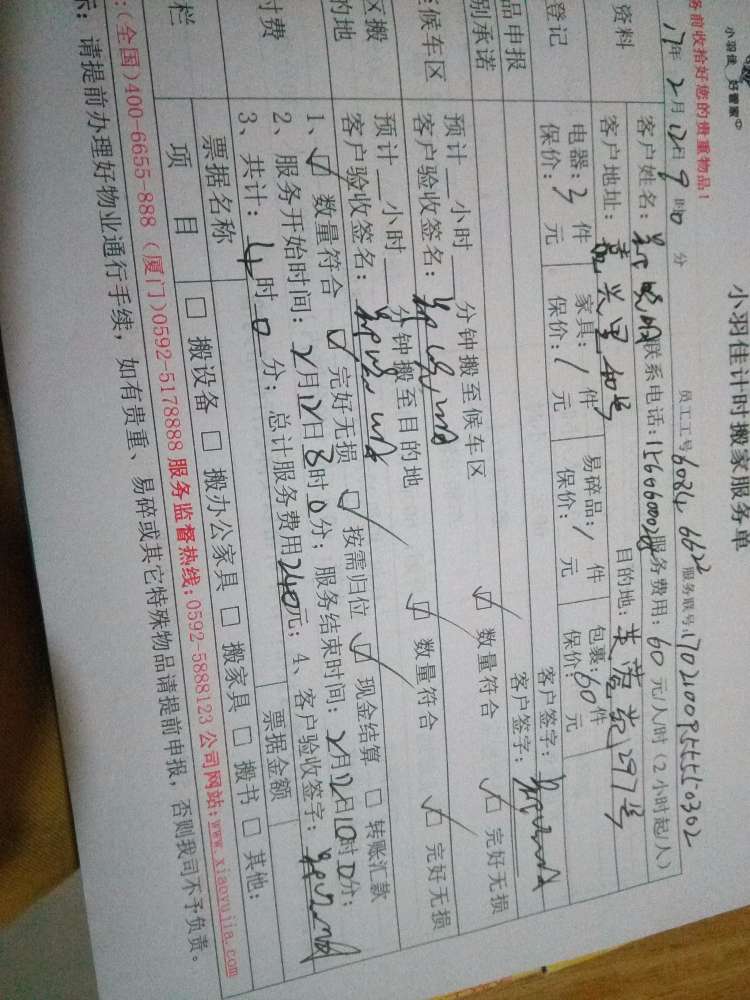 小羽佳 好管家
小羽佳计时搬家服务单
务前收拾好您的贵重物品！
员工工号 6084 6622 服务联号:
17年2月12日9时0分
资料
客户姓名： 联系电话： 服务费用：60元/人/时（2小时起/人）
客户地址：嘉兴里40号 目的地：芙蓉苑297号
登记
电器：3件 家具：/件 易碎品：/件 包裹：60件
保价： 元 保价：/元 保价： 元 保价： 元
品申报 客户签字：
别承诺 客户签字：
候车区 预计__小时__分钟搬至候车区 ☑ 数量符合 ☑ 完好无损
客户验收签名：
区搬 预计__小时__分钟搬至目的地 ☑ 数量符合 ☑ 完好无损
的地 客户验收签名：
付费 1、☑ 数量符合 ☑ 完好无损 ☑ 按需归位 ☑ 现金结算 □ 转账汇款
2、服务开始时间：2月12日8时0分；服务结束时间：2月12日10时0分；
3、共计：4时0分；总计服务费用240元；4、客户验收签字：
栏 票据名称 票据金额
项 目 □ 搬设备 □ 搬办公家具 □ 搬家具 □ 搬书 □ 其他：
：(全国)400-6655-888 (厦门)0592-5178888 服务监督热线:0592-5888123 公司网站:www.xiaoyujia.com
示：请提前办理好物业通行手续，如有贵重、易碎或其它特殊物品请提前申报，否则我司不予负责。